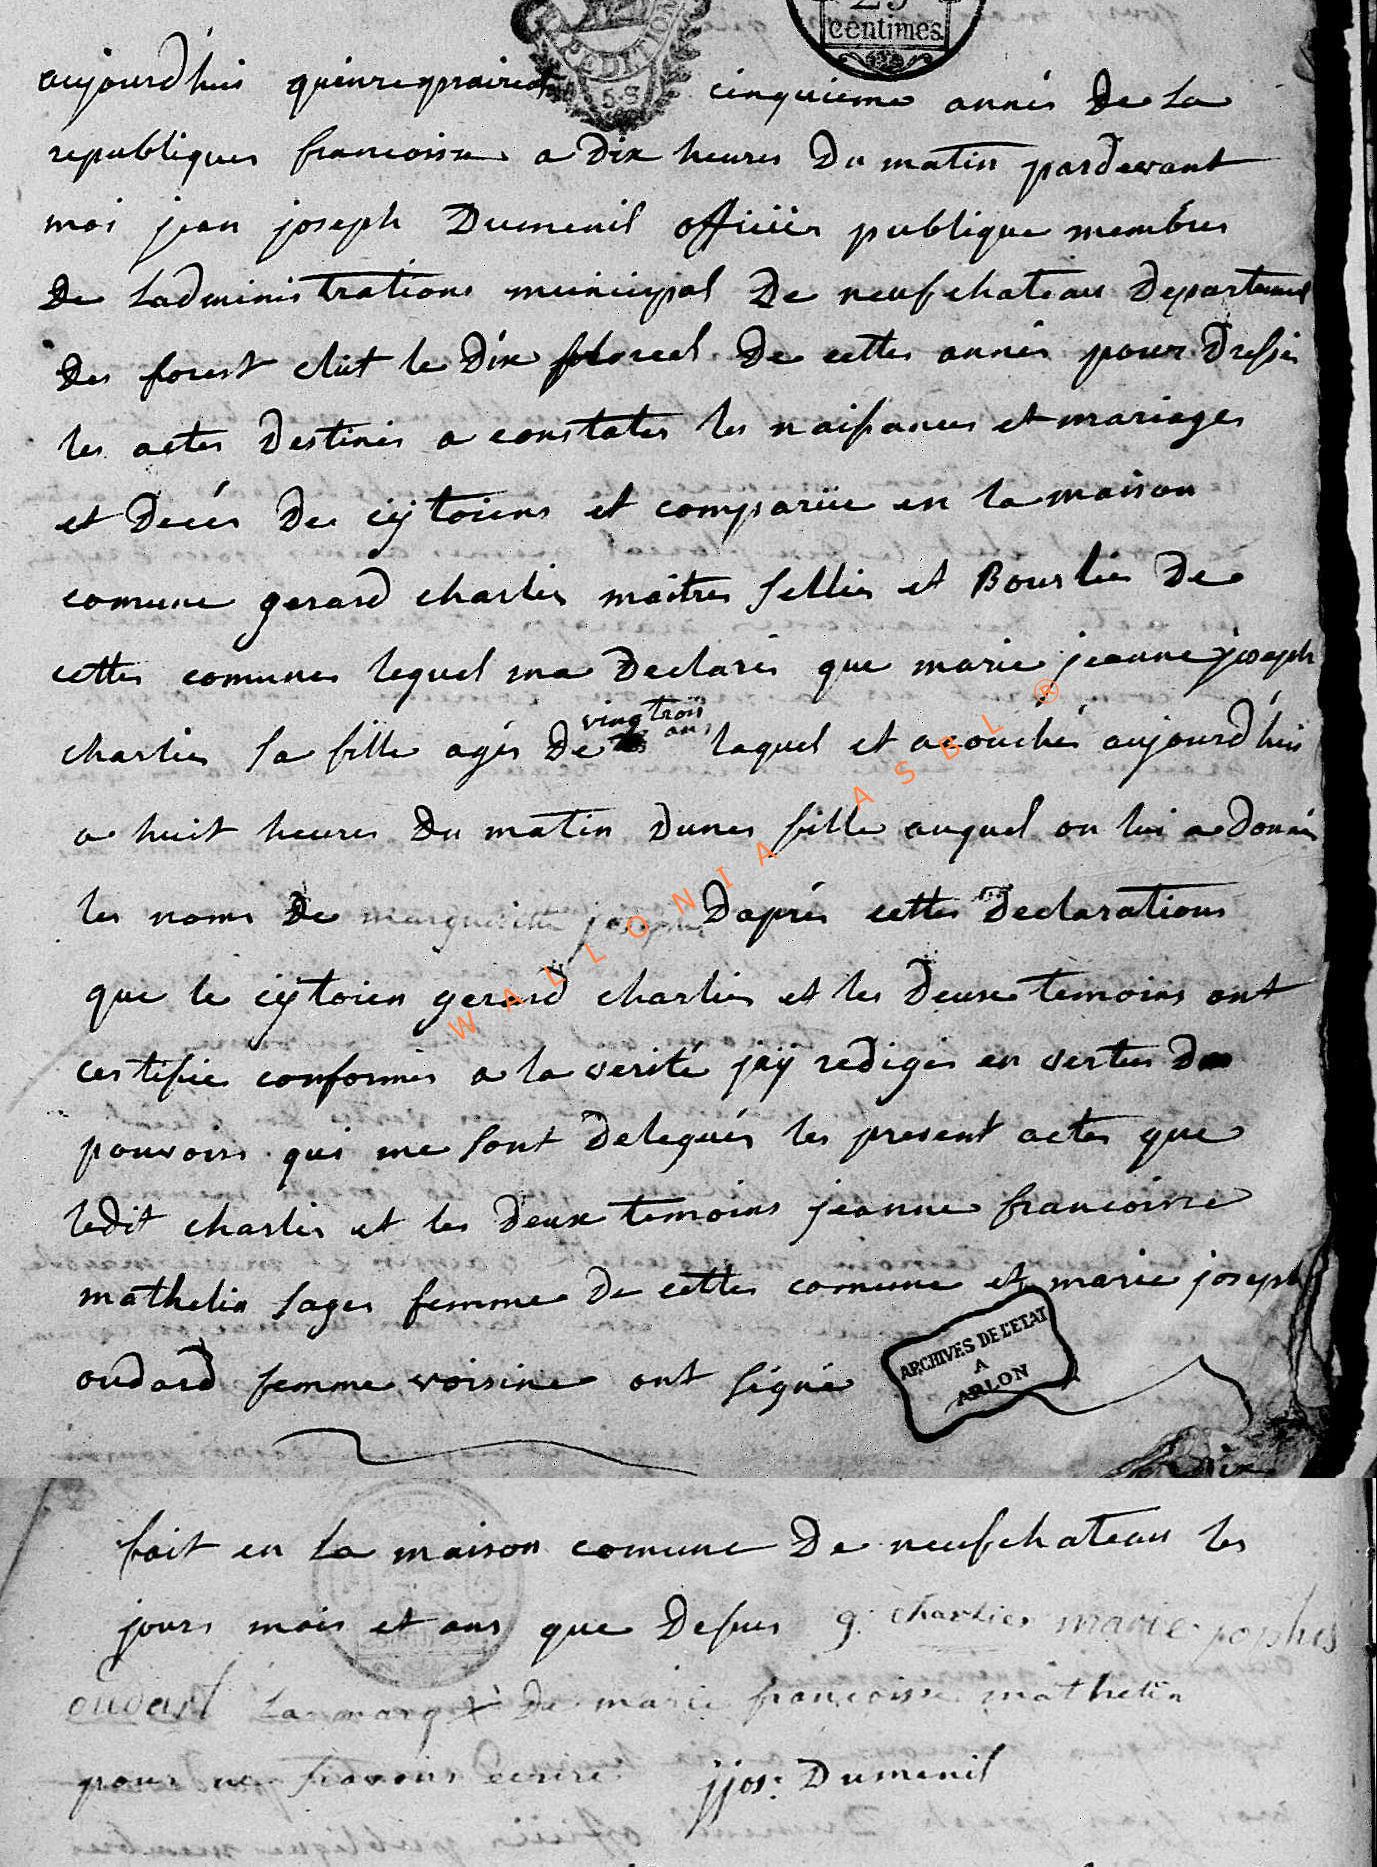 25
centimes
5.S
aujourd'huis quienre prairial cinquieme anneé De La
republiques francoisse a Dix heures Du matin pardevant
moi jean joseph Dumenil officiér publique membres
De Ladministrations municipal De neufchateau Departement
Des forest elüt le Dix floreal De cettes anneé pour Dresser
les actes Destinés a constates les naissances et mariages
et Decés De cÿtoiens et compariie en la maison
comune gerard charlier maitres sellier et Bourlier De
cettes comunes lequel ma Declarés que marie jeanne joseph
charlier sa fille ageé De vingtrois ans laquel et acouchée aujourd'huis
a huit heures Du matin Dunes fille auquel on lui a donnés
les noms De margueritte josephe Daprés cettes Declarations
que le cÿtoien gerard charlier et les Deuxe temoins ont
certifié conformes a la verité jaÿ rediges en vertus Du
pouvoirs qui me sont Delegués les present actes que
ledit charlier et les Deuxe temoins jeanne francoisse
mathelin sages femme De cettes comune et marie joseph
oudard femme voisine ont signé
ARCHIVES DE L'ETAT
A
ARLON
WALLONIA ASBL ®
fait en La maison comune De neufchateau les
jours mois et ans que Desus g: charlier marie josephes
oudart La marq X De marie francoisse mathelin
pour ne savoir ecrire jjos: Dumenil